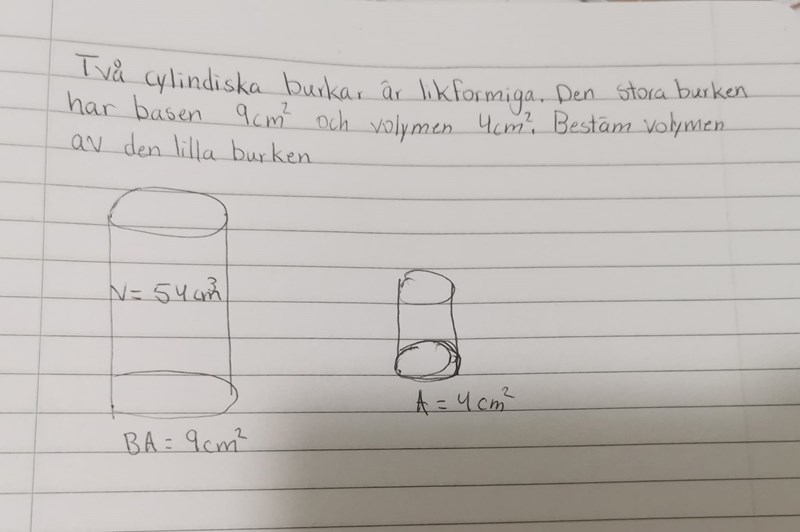 Två cylindiska burkar är likformiga. Den stora burken
har basen 9cm² och volymen 4cm². Bestäm volymen
av den lilla burken
V = 54cm³
A = 4cm²
BA = 9cm²